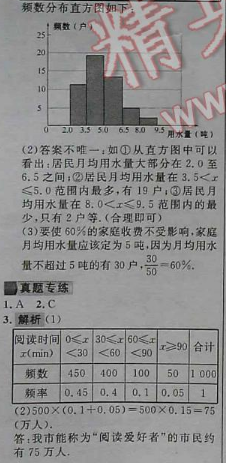 频数分布直方图如下:
频数(户)
25
20
15
10
5
0 2.0 3.5 5.0 6.5 8.0 9.5
用水量(吨)
(2)答案不唯一;如①从直方图中可以
看出:居民月均用水量大部分在 2.0 至
6.5 之间;②居民月均用水量在 3.5<x
≤5.0 范围内最多,有 19 户;③居民月
均用水量在 8.0<x≤9.5 范围内的最
少,只有 2 户等.(合理即可)
(3)要使 60%的家庭收费不受影响,家庭
月均用水量应该定为 5 吨,因为月均用水
量不超过 5 吨的有 30 户,30/50=60%.
真题专练
1. A 2. C
3. 解析 (1)
阅读时间 x(min) 0≤x<30 30≤x<60 60≤x<90 x≥90 合计
频数 450 400 100 50 1 000
频率 0.45 0.4 0.1 0.05 1
(2)500×(0.1+0.05)=500×0.15=75
(万人).
答:我市能称为“阅读爱好者”的市民约
有 75 万人.